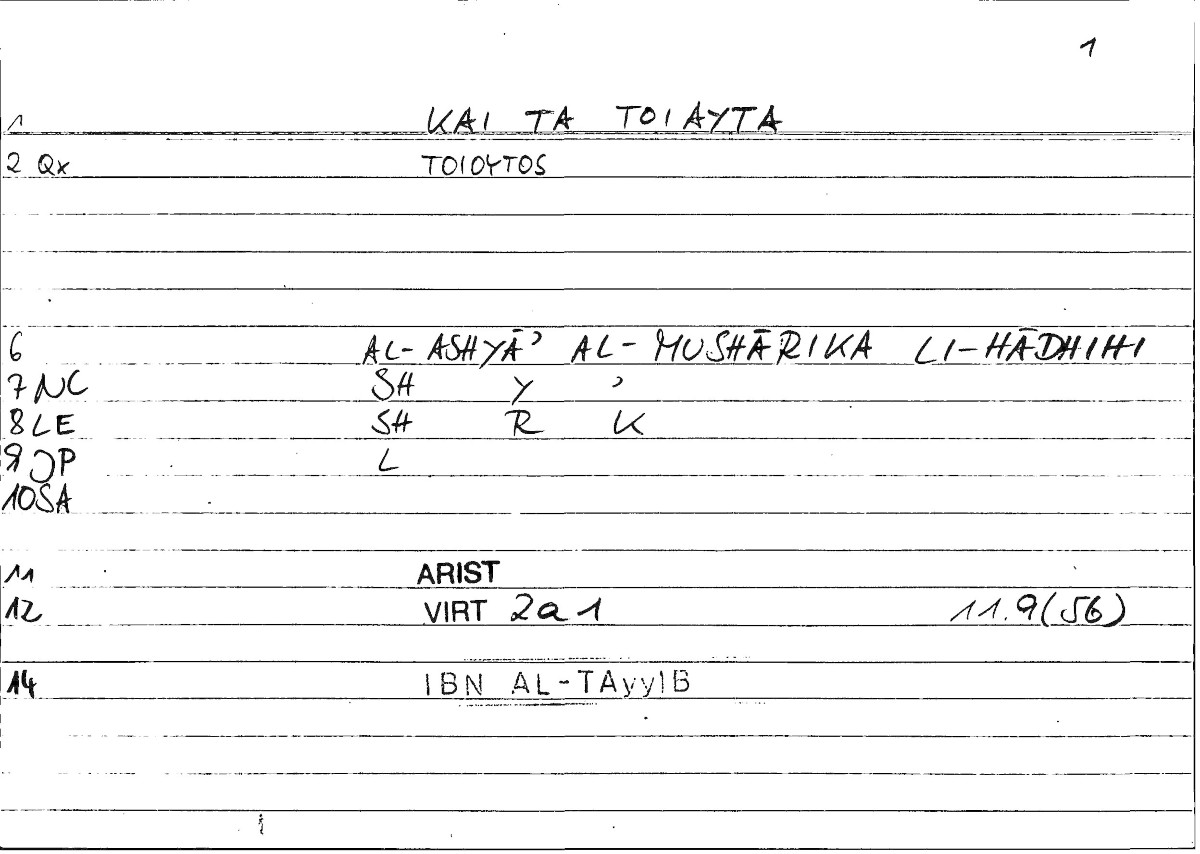 1
1 KAI TA TOIAYTA
2 Qx TOIOYTOS
6 AL-ASHYĀʾ AL-MUSHĀRIKA LI-HĀDHIHI
7 NC SH Y ʾ
8 LE SH R K
9 JP L
10 SA
11 ARIST
12 VIRT 2a1 11.9(56)
14 IBN AL-TAyyIB